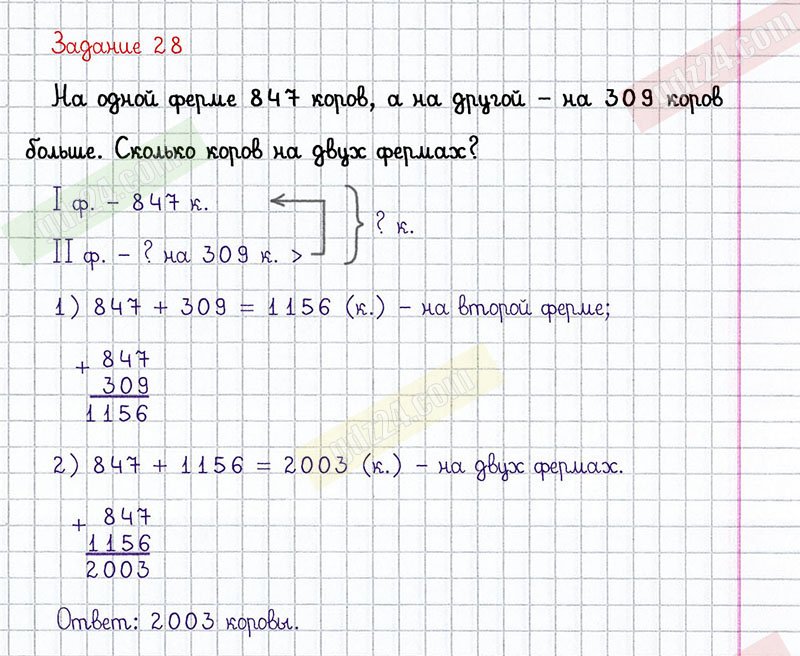 Задание 28
На одной ферме 847 коров, а на другой – на 309 коров
больше. Сколько коров на двух фермах?
I ф. – 847 к.
? к.
II ф. – ? на 309 к. >
1) 847 + 309 = 1156 (к.) – на второй ферме;
+ 847
309
1156
2) 847 + 1156 = 2003 (к.) – на двух фермах.
+ 847
1156
2003
Ответ: 2003 коровы.
gdz24.com
gdz24.com
gdz24.com